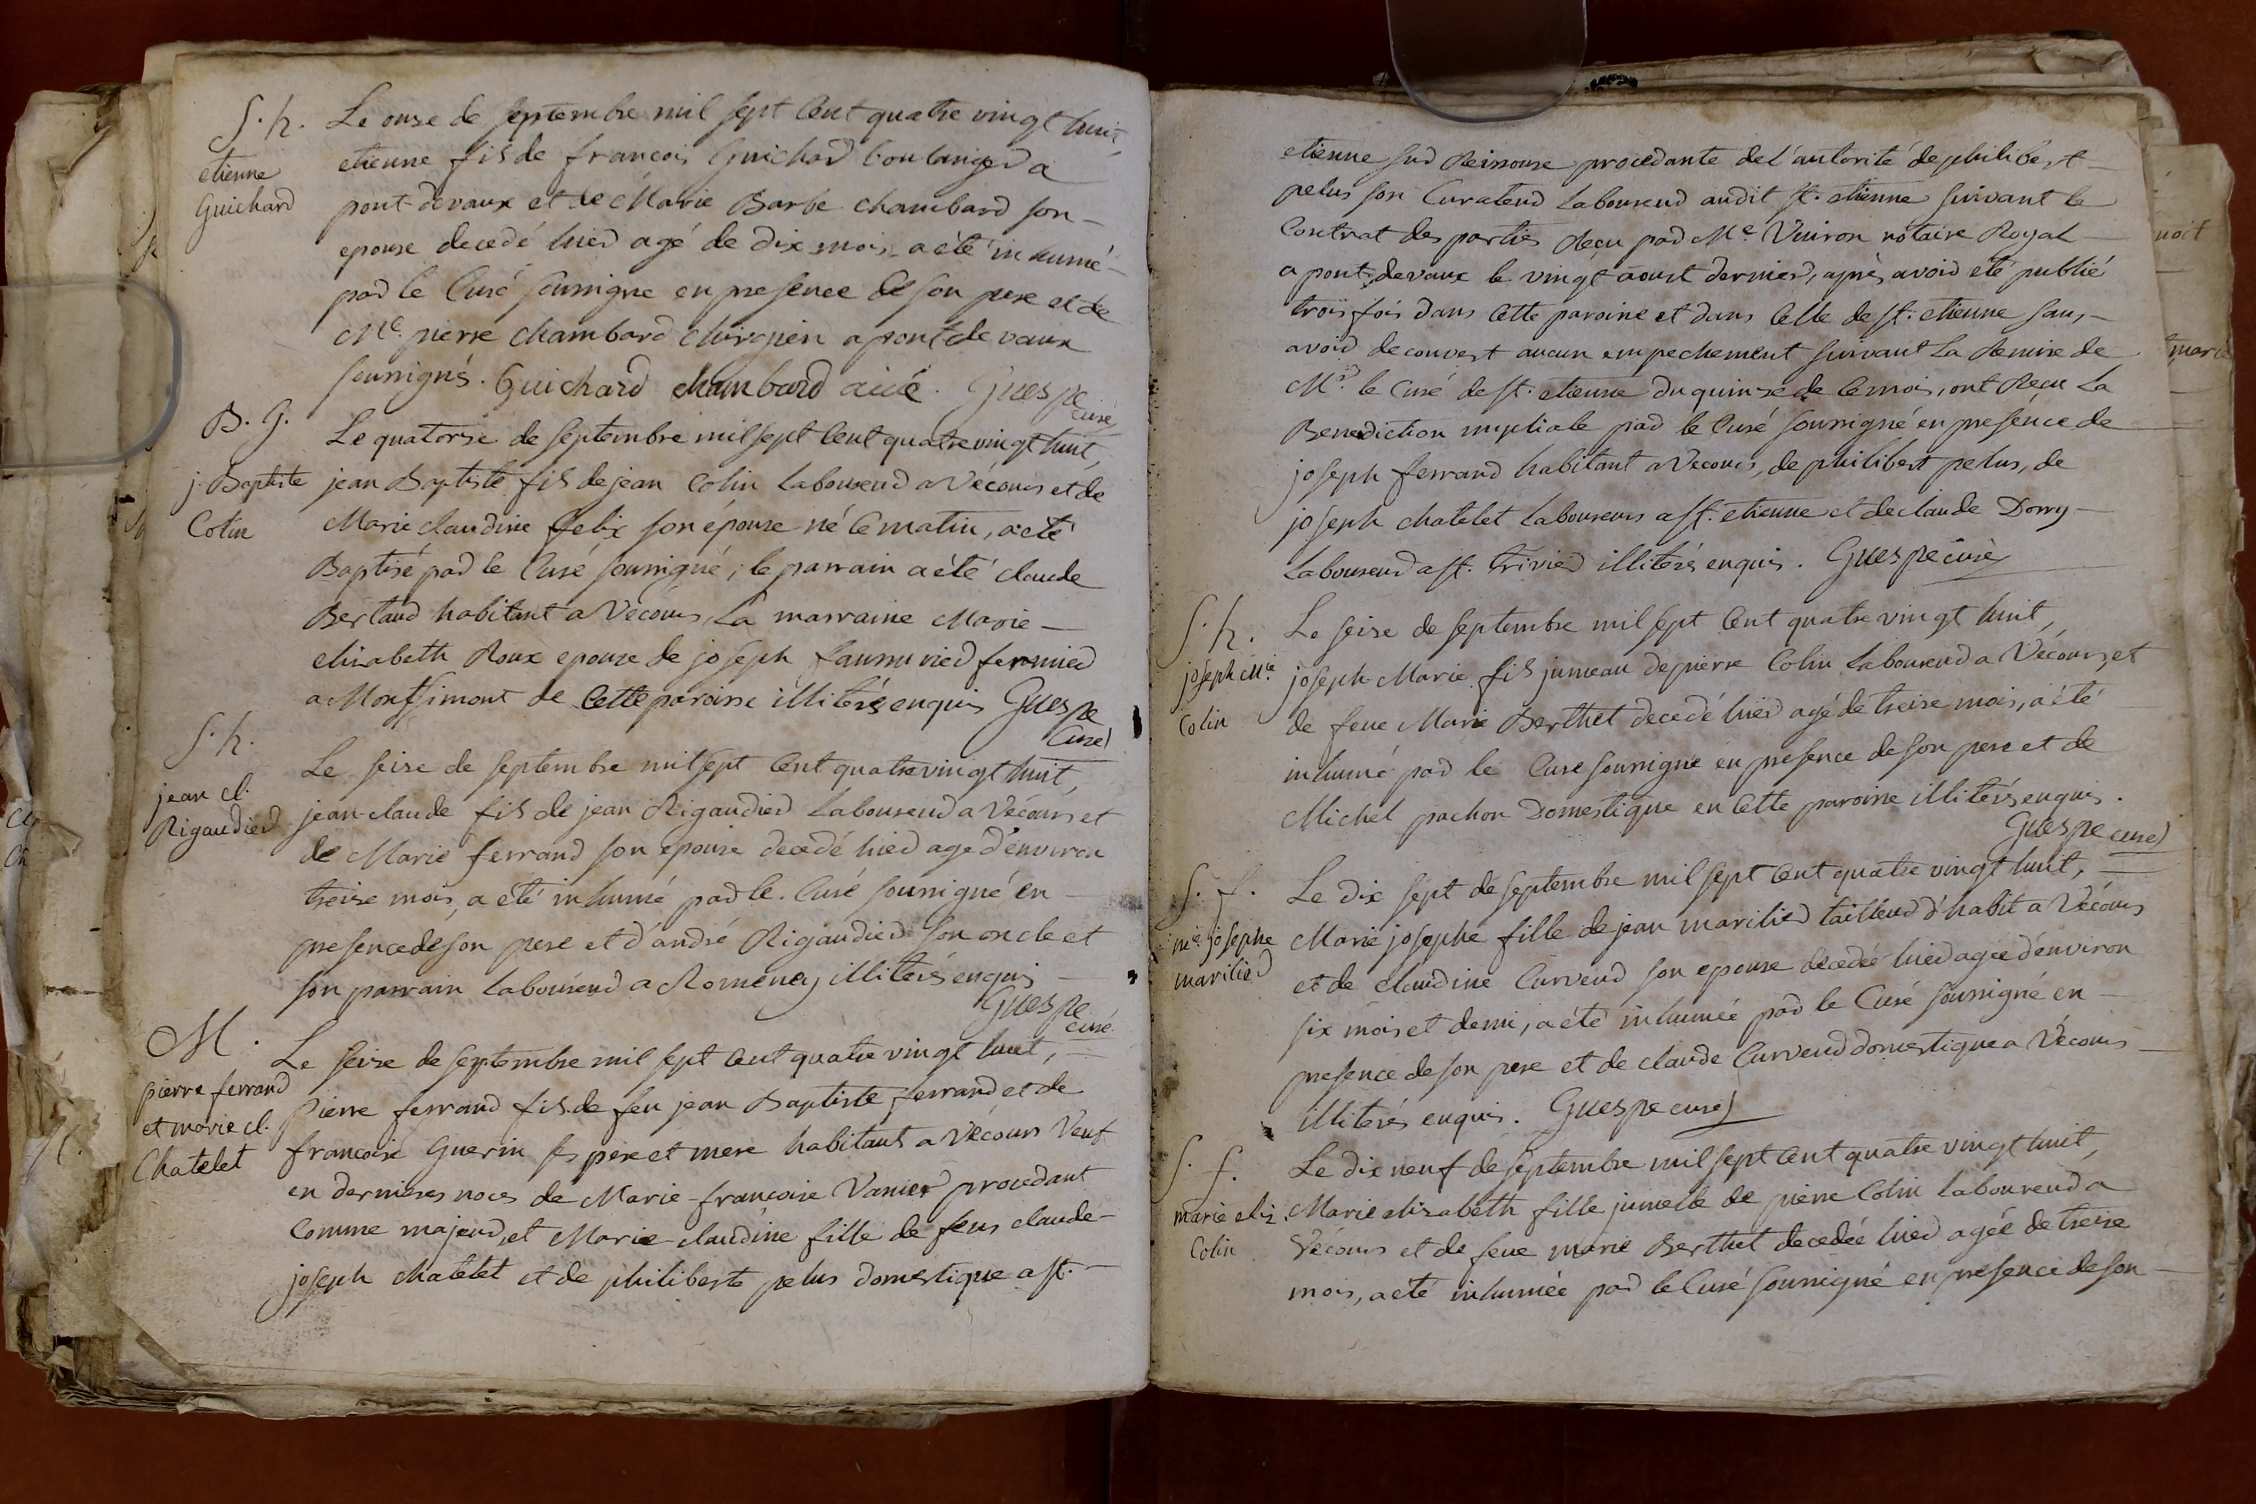 S. h.
etienne
Guichard
Le onse de septembre mil sept Cent quatre vingt huit,
etienne fils de francois Guichard boulanger a
pont devaux et de Marie Barbe chambard son
epouse decedé hier agé de dix mois a été inhumé
par le Curé soussigné en presence de son pere et de
Me. pierre chambard chirurgien a pont de vaux
soussignés. Guichard chambard ainé. Guespe
curé
B. G.
j. Baptiste
Colin
Le quatorse de septembre mil sept Cent quatre vingt huit,
jean Baptiste fils de jean Colin laboureur a Vécours et de
Marie claudine felix son épouse né ce matin, a été
Baptisé par le Curé soussigné; le parrain a été claude
Bertaud habitant a Vécours, La marraine Marie
elizabeth Roux epouse de joseph fermier
a Montsimont de Cette paroisse illiterés enquis Guespe
Curé
S. h.
jean cl.
Rigaudier
Le seise de septembre mil sept Cent quatre vingt huit,
jean-claude fils de jean Rigaudier laboureur a Vécours et
de Marie ferrand son épouse decedé hier agé d'environ
treise mois, a été inhumé par le Curé soussigné en
presence de son pere et d'andré Rigaudier son oncle et
son parrain laboureur a Romenay illiterés enquis
Guespe
curé
M.
pierre ferrand
et marie cl.
Chatelet
Le seise de septembre mil sept Cent quatre vingt huit,
Pierre ferrand fils de feu jean Baptiste ferrand et de
francoise Guerin ses pere et mere habitant a Vécours Veuf
en dernieres noces de Marie-francoise Vanier procedant
Comme majeur, et Marie-claudine fille de feus claude-
joseph chatelet et de philiberte pelus domestique a st.
etienne sur Reissouse procedante de l'autorité de philibert
pelus son Curateur laboureur audit st. etienne suivant le
Contrat des parties Reçu par Me. Vuiron notaire Royal
a pont devaux le vingt aoust dernier, après avoir été publié
trois fois dans Cette paroisse et dans Celle de st. etienne sans
avoir decouvert aucun empechement suivant la Remise de
Mr. le Curé de st. etienne du quinse de Ce mois, ont Reçu la
Benediction nuptiale par le Curé soussigné en presence de
joseph ferrand habitant a Vecours, de philibert pelus, de
joseph chatelet laboureurs a st. etienne et de claude Dorry
laboureur a st. trivier illiterés enquis. Guespe curé
S. h.
joseph Mie.
Colin
Le seise de septembre mil sept Cent quatre vingt huit,
joseph-Marie fils jumeau de pierre Colin laboureur a Vécours, et
de feue Marie Berthet decedé hier agé de treise mois, a été
inhumé par le Curé soussigné en presence de son pere et de
Michel pachon Domestique en Cette paroisse illiterés enquis.
Guespe curé
S. f.
mie. josephe
marilier
Le Dix sept de septembre mil sept Cent quatre vingt huit,
Marie josephe fille de jean marilier tailleur d'habit a Vécours
et de claudine Curveur son epouse decedée hier agée d'environ
six mois et demi, a été inhumée par le Curé soussigné en
presence de son pere et de claude Curveur domestique a Vécours
illiterés enquis. Guespe curé
S. f.
marie eliz.
Colin
Le dix neuf de septembre mil sept Cent quatre vingt huit,
Marie elizabeth fille jumelle de pierre Colin laboureur a
Vécours et de feue marie Berthet decedée hier agée de treise
mois, a été inhumée par le Curé soussigné en presence de son